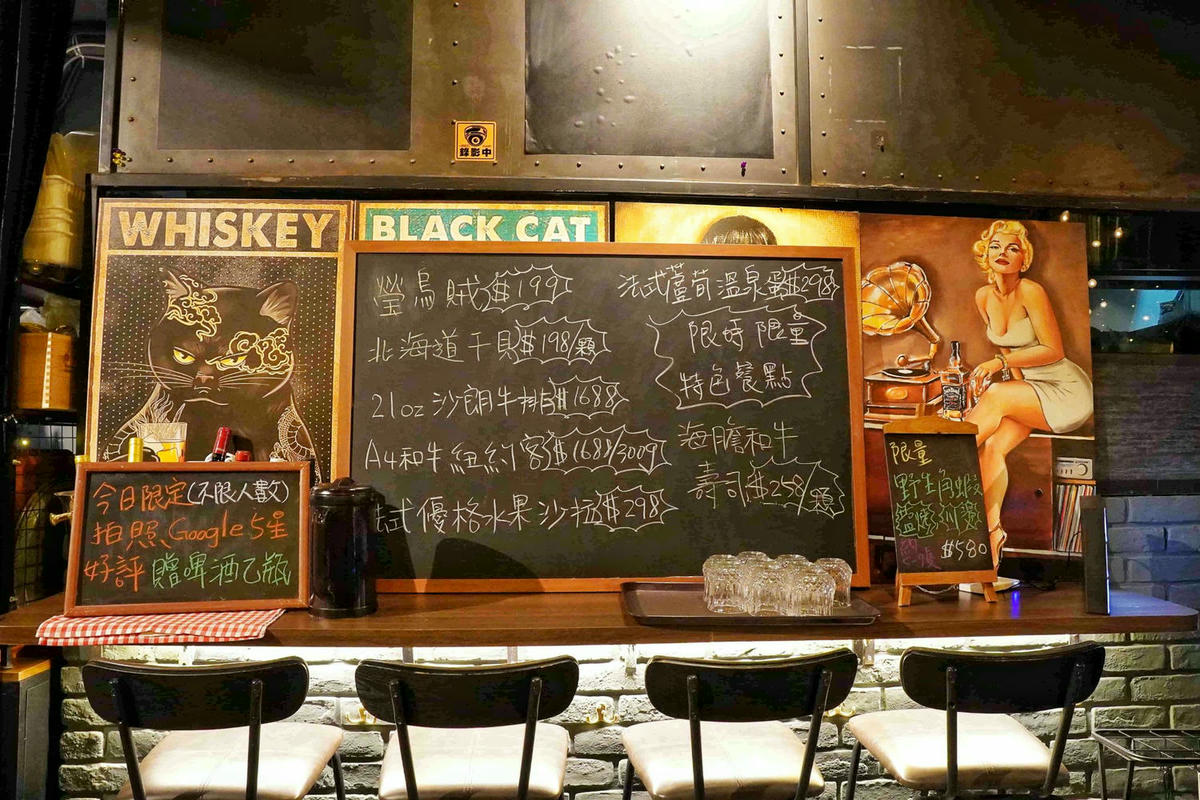 錄影中
WHISKEY
BLACK CAT
螢烏賊 $199
北海道干貝 $198/顆
21oz 沙朗牛排 $1688
A4和牛紐約客 $1688/300g
法式優格水果沙拉 $298
法式蘆荀溫泉蛋 $298
限時限量
特色餐點
海膽和牛
壽司 $258/顆
今日限定(不限人數)
拍照、Google 5星
好評贈啤酒乙瓶
限量
野生角蝦
$580